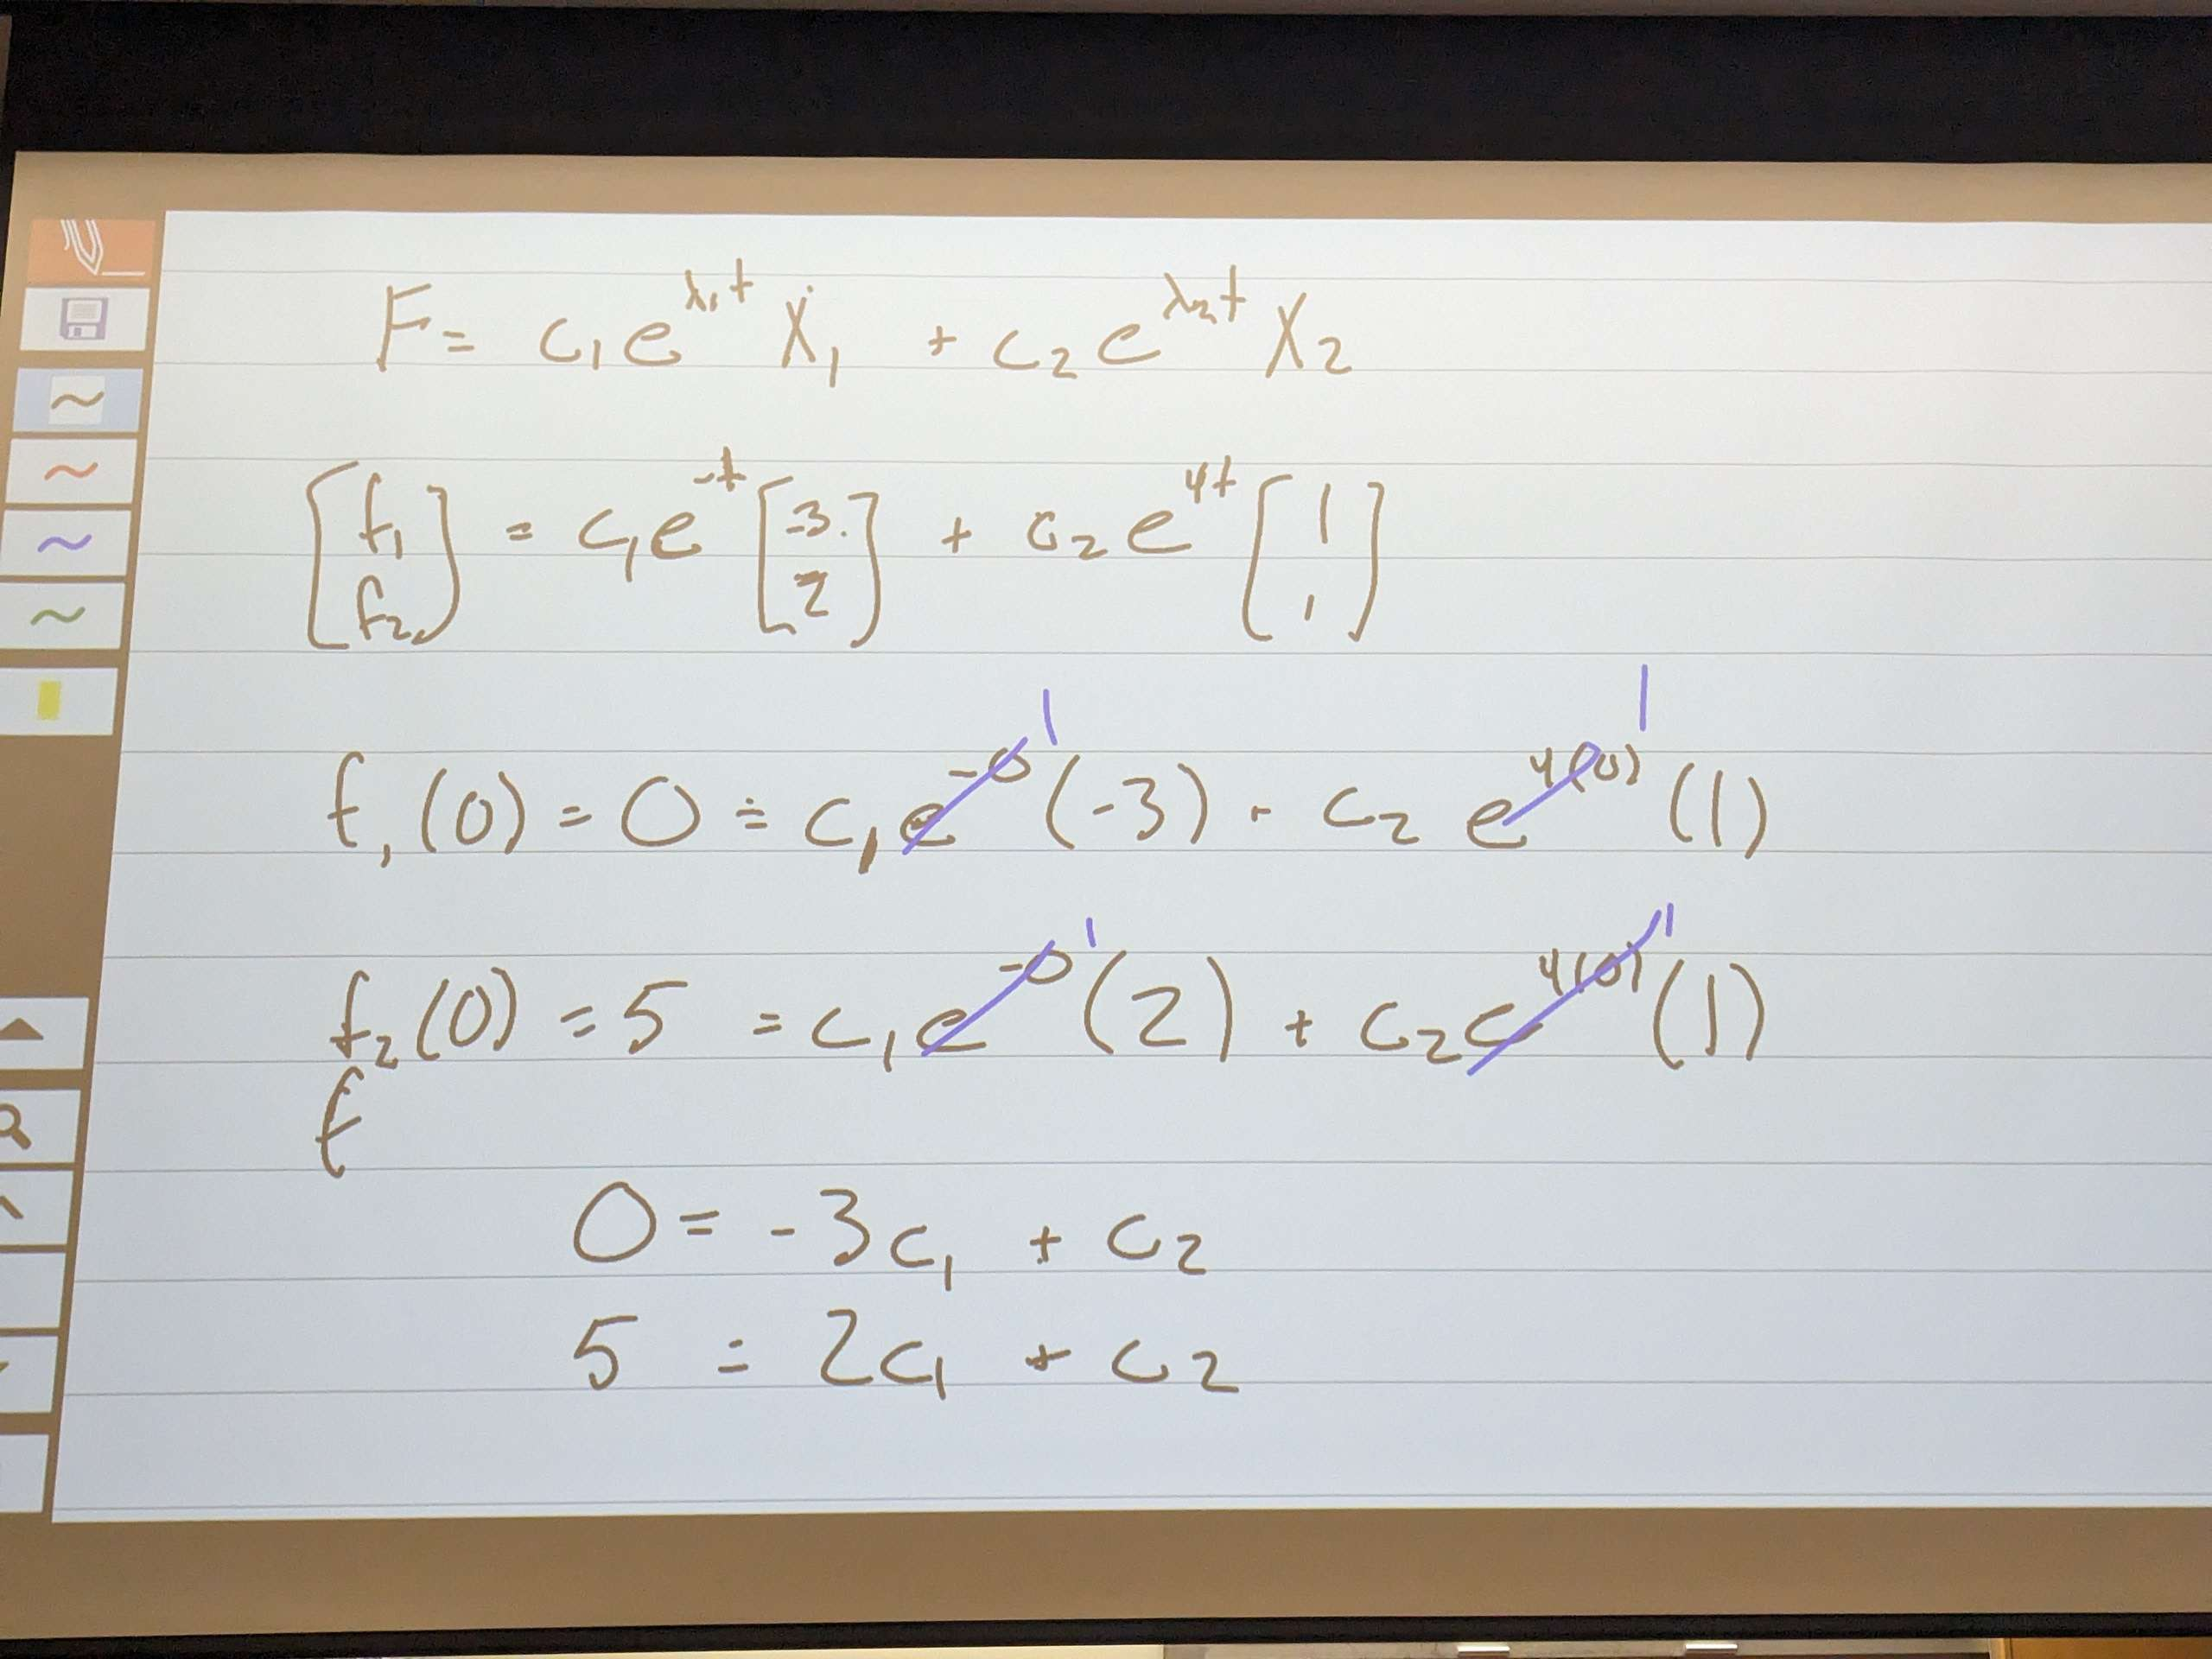 F = c₁e^λ₁t X₁ + c₂e^λ₂t X₂
[f₁ f₂] = c₁e^-t [-3 2] + c₂e^4t [1 1]
1 1
f₁(0) = 0 = c₁e^-0 (-3) - c₂ e^4(0) (1)
1 1
f₂(0) = 5 = c₁e^-0 (2) + c₂e^4(0) (1)
f
0 = -3c₁ + c₂
5 = 2c₁ + c₂